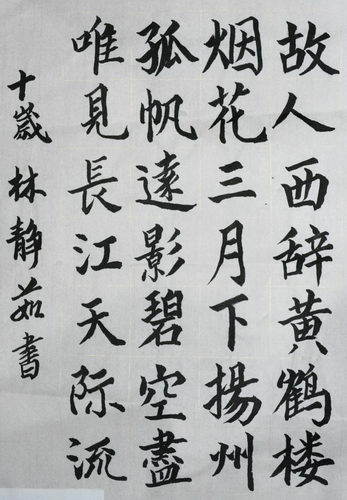 故人西辞黄鹤楼
烟花三月下揚州
孤帆遠影碧空盡
唯見長江天际流
十歲 林靜茹書